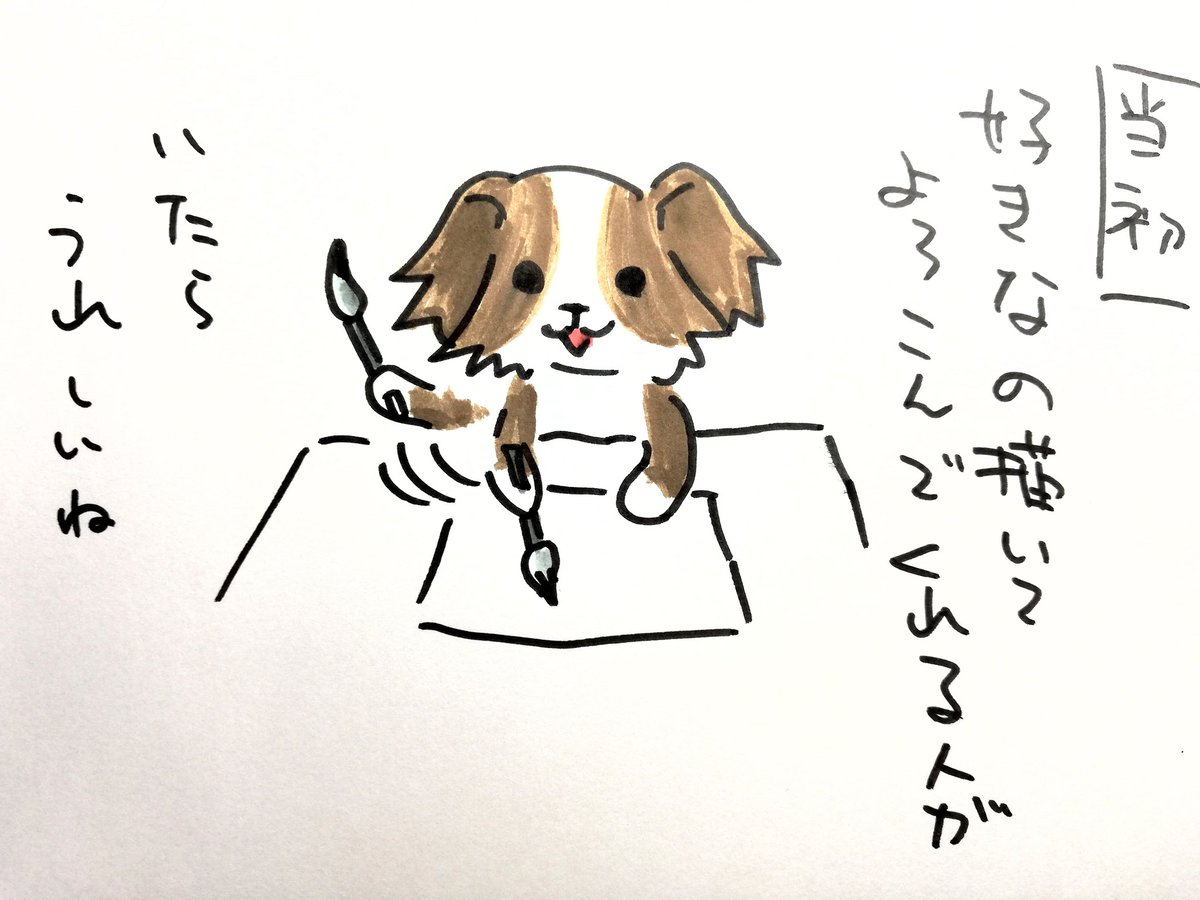 当初
好きなの描いて
よろこんでくれる人が
いたら
うれしいね